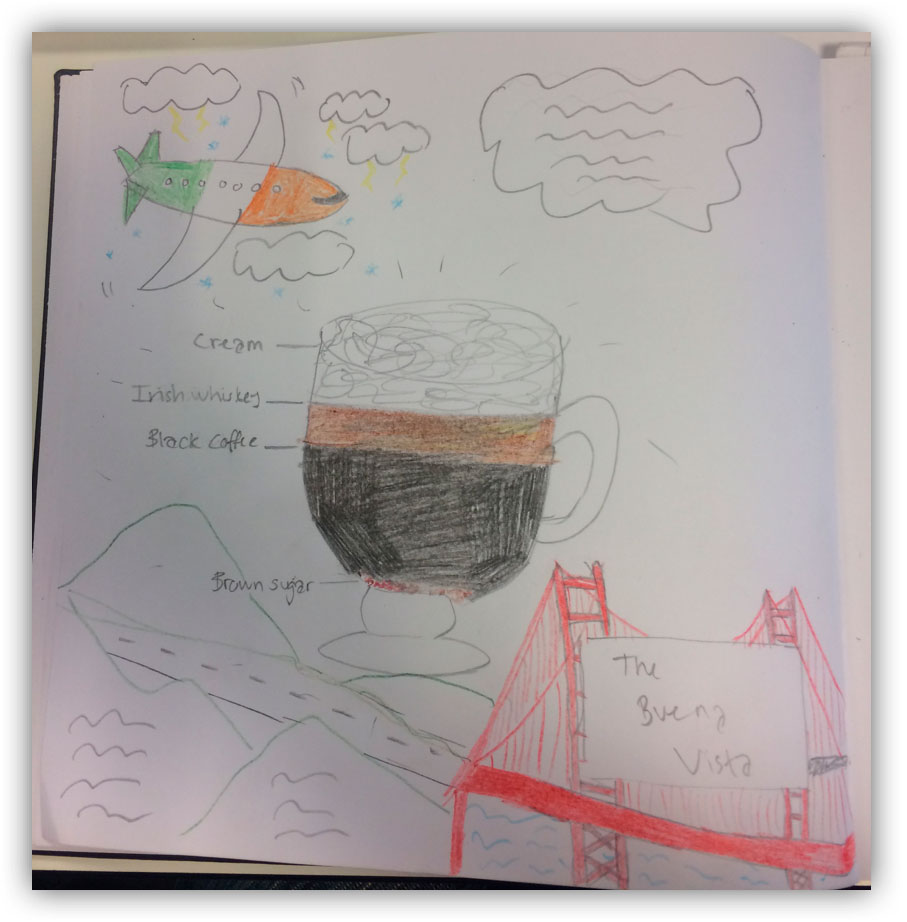 Cream
Irish whiskey
Black coffee
Brown sugar
The
Buena
Vista